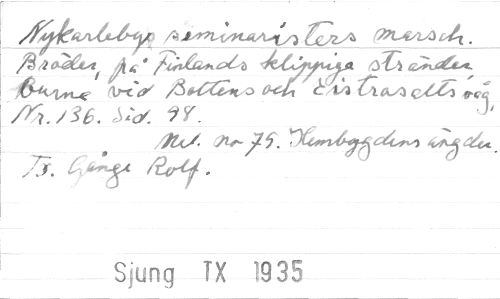 Nykarleby seminaristers marsch.
Bröder, på Finlands klippiga stränder
burna vid Bottens och Eistrasalts våg,
Nr. 136. Sid. 98.
Mel. no 79. Hembygdens ängder.
Tx. Gånge Rolf.
Sjung TX 1935